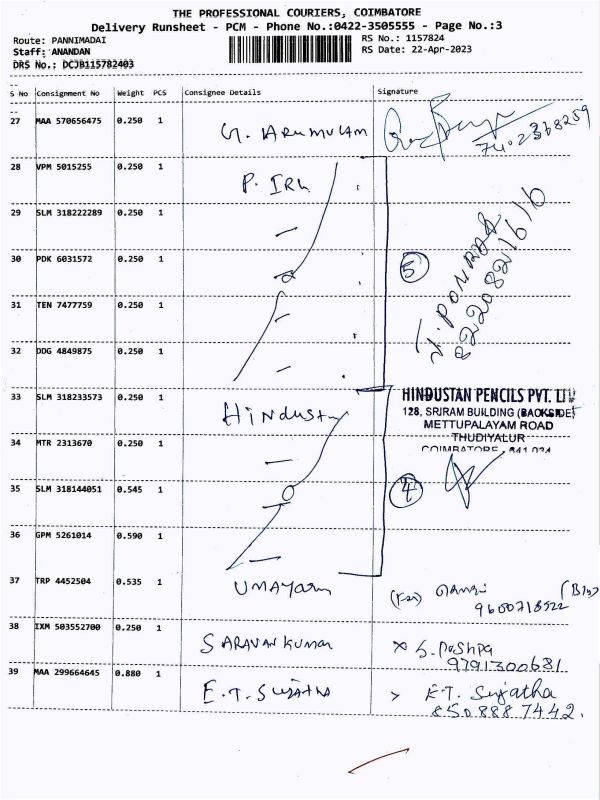 THE PROFESSIONAL COURIERS, COIMBATORE
Delivery Runsheet - PCM - Phone No.:0422-3505555 - Page No.:3
Route: PANNIMADAI RS No.: 1157824
Staff: ANANDAN RS Date: 22-Apr-2023
DRS No.: DCJB115782403
S No Consignment No Weight PCS Consignee Details Signature
27 MAA 570656475 0.250 1 G. ARUMUGAM
7402368259
28 VPM 5015255 0.250 1 P. IRU
29 SLM 318222289 0.250 1
30 PDK 6031572 0.250 1 5
31 TEN 7477759 0.250 1
J. PONRAJ
8220821616
32 DDG 4849875 0.250 1
33 SLM 318233573 0.250 1 Hindustan
HINDUSTAN PENCILS PVT. LTD
128, SRIRAM BUILDING (BACKSIDE)
METTUPALAYAM ROAD
THUDIYALUR
COIMBATORE - 641 034
34 MTR 2313670 0.250 1
35 SLM 318144051 0.545 1 4
36 GPM 5261014 0.590 1
37 TRP 4452504 0.535 1 UMAYam
9600718522
38 IXM 503552700 0.250 1 SARAVANKUMAR S. Pushpa
9791300681
39 MAA 299664645 0.880 1 E.T. SUJATHA E.T. Sujatha
850888 7442.